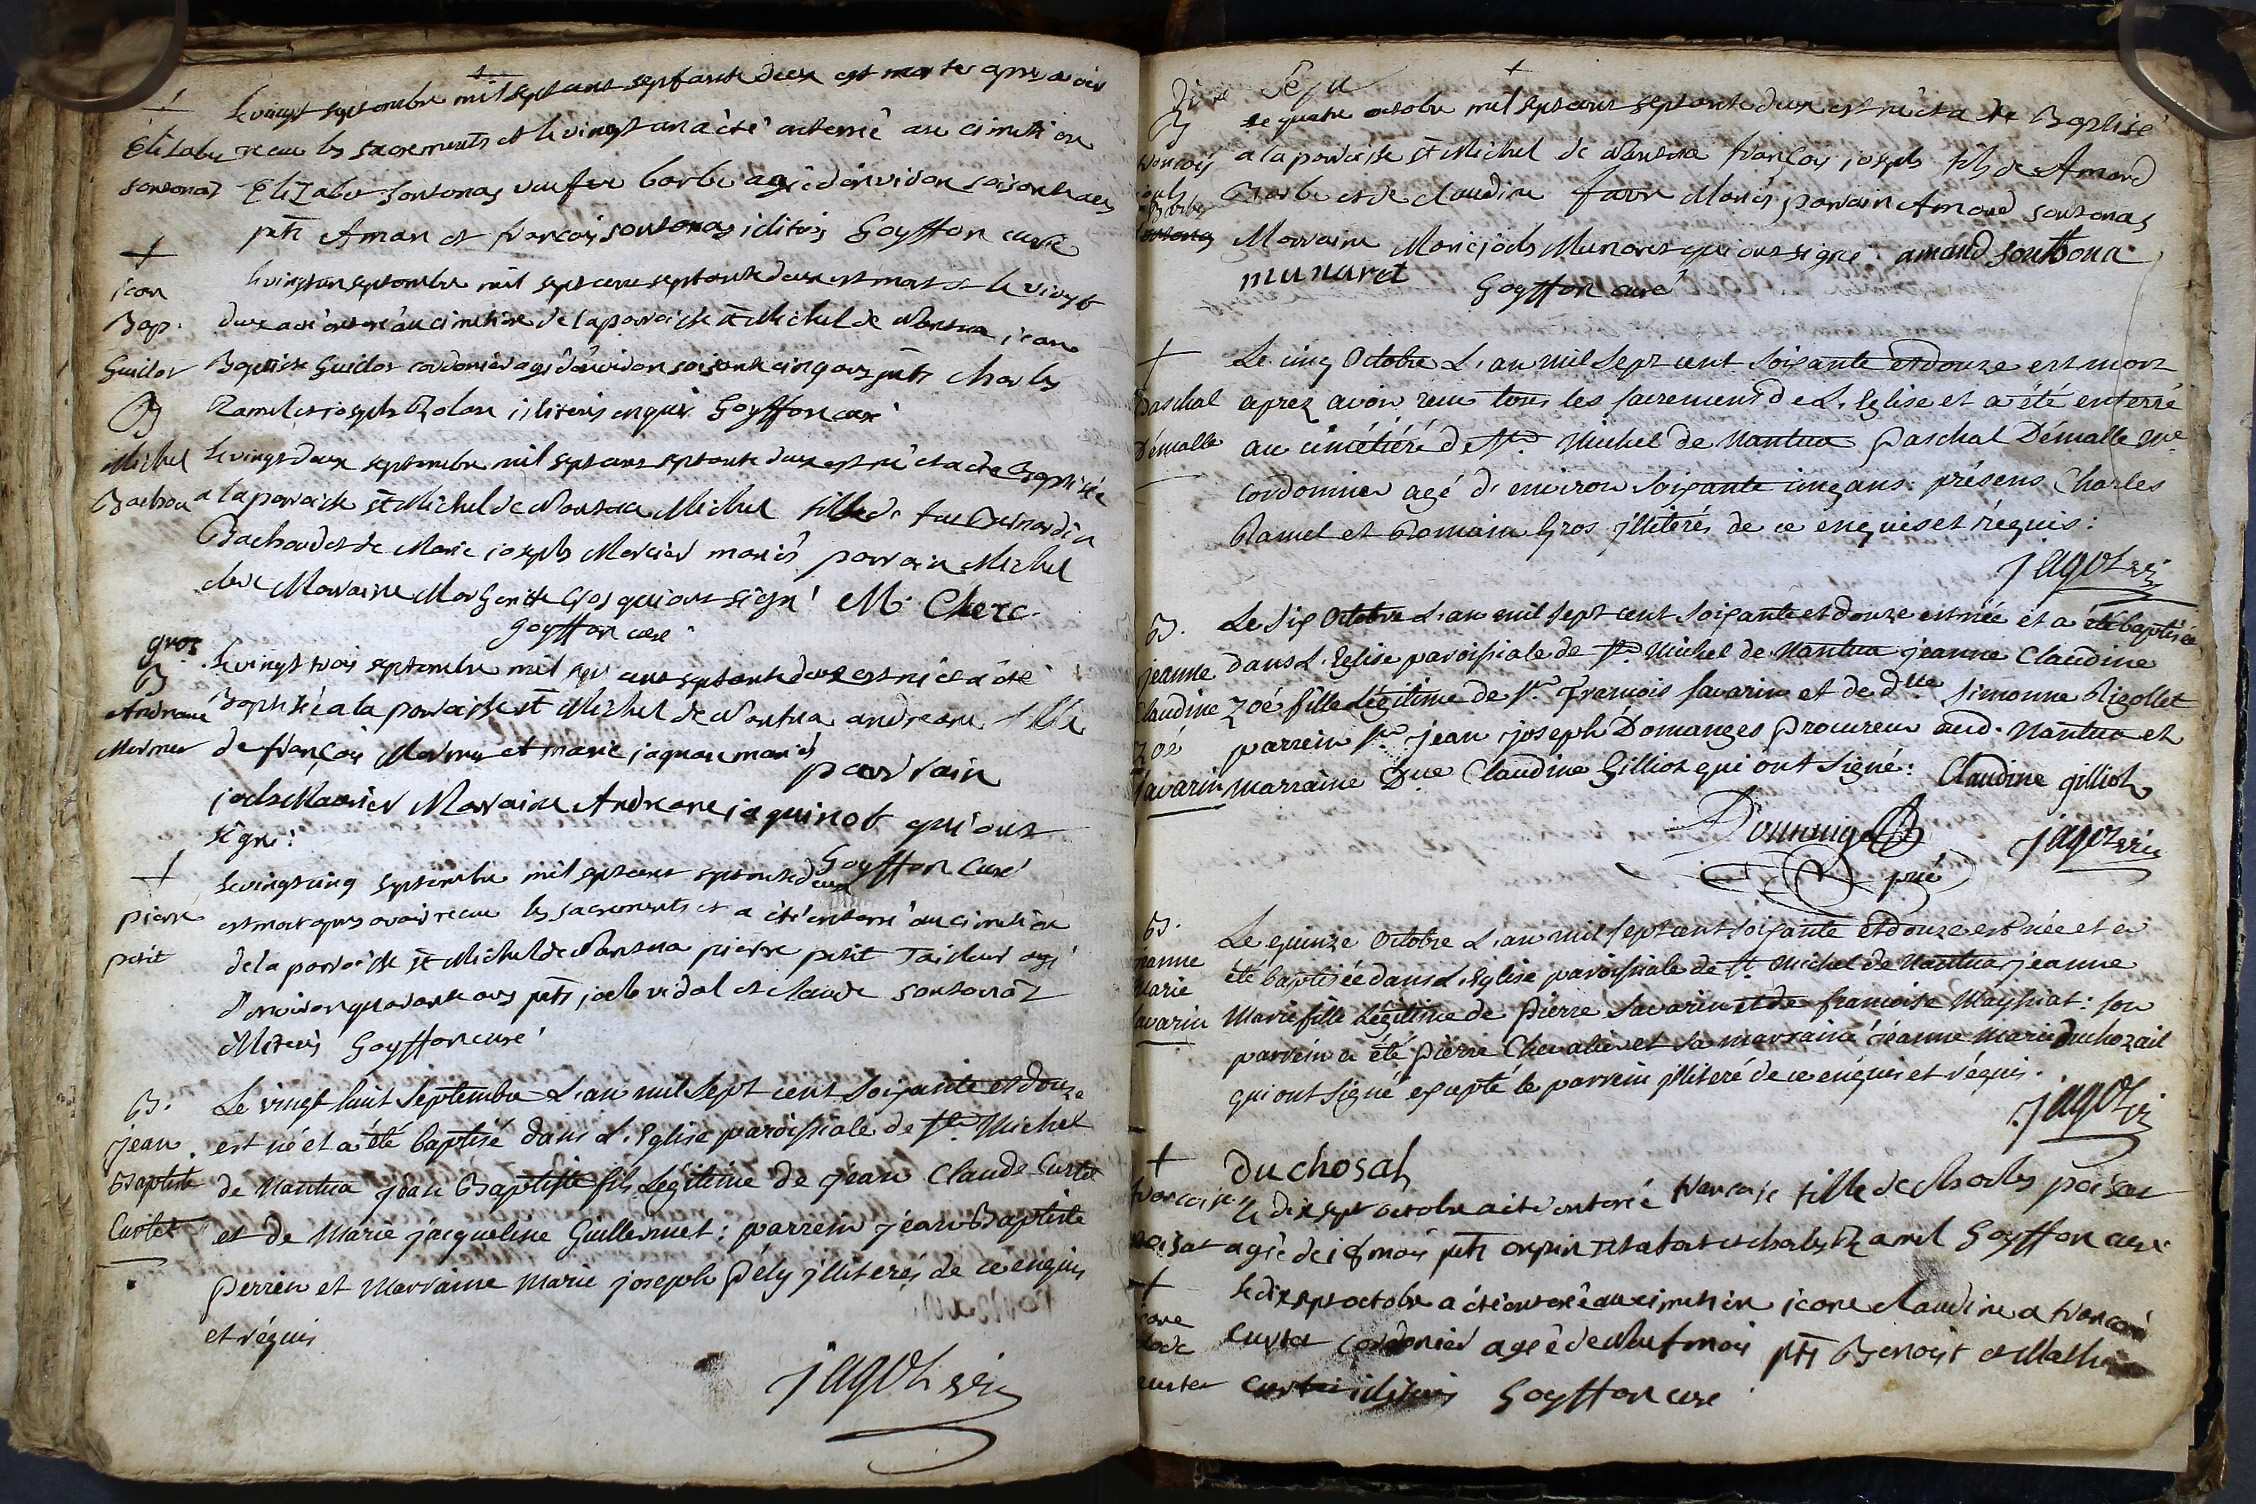 Le vingt septembre mil sept cent septante deux est morte apres avoir
Elizabe recue les sacrements et le vingt un a été enterrée au cimetiere
sontonas Elizabe sontonas veufve barbe agée d'environ soisente ans
pnts Aman et françois sontonas iliterés Goyffon curé
jean le vingt un septembre mil sept cent septante deux est mort et le vingt
Bap. deux a été enterré au cimetiere de la parroisse St Michel de Nantua jean
Guidor Baptiste Guidor cordonier agé d'environ soisente cinq ans pnts charles
B Ramel et joseph Rolan iliterés enquis Goyffon curé
Michel le vingt deux septembre mil sept cent septante deux est né et a été Baptisée
Bachou a la parroisse St Michel de Nantua Michel fille de feu Bernardin
Bachoud et de Marie joseph Mercier mariés parrain Michel
clerc Marraine Margueritte Gros qui ont signé M. Clerc.
gros Goyffon curé
B le vingt trois septembre mil sept cent septante deux est née et a été
Andreane Baptisée a la parroisse St Michel de Nantua andreane fille
Mermer de françois Mermer et marie jaquan mariés parrain
Marraine Andreane jaquinot qui ont
signé. Goyffon Curé
le vingt cinq septembre mil sept cent septante deux
pierre est mort apres avoir recue les sacrements et a été enterré au cimetiere
petit de la parroisse St Michel de Nantua pierre petit Tailleur agé
d'environ quarante ans pnts joseph vidal et claude sontonas
illiterés Goyffon curé
B. Le vingt huit Septembre L'an mil Sept cent Soixante et douze
jean est né et a été baptisé dans L'Eglise paroissiale de St Michel
Baptiste de Nantua jean Baptiste fils Légitime de jean Claude Curtet
Curtet et de Marie jacqueline Guillermet : parrein jean Baptiste
Perren et Marraine Marie joseph Pély jlliterés de ce enquis
et réquis
jagot vic
B le quatre octobre mil sept cent septante deux est né et a été Baptisé
francois a la parroisse St Michel de Nantua françois joseph fils de Amand
Barbe et de claudine favre Mariés parrain Amand sontonas
Marraine Marie joseph Munaret qui ont signé amand sontona
munaret Goyffon curé
Le cinq Octobre L'an mil Sept cent Soixante et douze est mort
Paschal aprez avoir reçu tous les sacremens de L'Eglise et a été enterré
Démalle au cimétiéré de St Michel de Nantua Paschal Démalle Me
cordonnier agé d'environ Soixante cinq ans : présens Charles
Ramel et Romain Gros jlliterés de ce enquis et réquis :
jagot vic
B. Le Six Octobre L'an mil Sept cent Soixante et douze est née et a été baptisée
jeanne dans L'Eglise paroissiale de St Michel de Nantua jeanne Claudine
Claudine Zoé fille Légitime de Sr François Savarin et de dlle Simonne Rigollet
Zoé parrein Sr jean joseph Domanges Procureur aud. Nantua et
Savarin marraine Dlle Claudine Gilliot qui ont Signé : Claudine gilliot
jagot vic
B. Le quinze Octobre L'an mil sept cent soixante et douze est née et a
jeanne été baptisée dans L'Eglise paroissiale de St Michel de Nantua jeanne
Marie Marie fille Légitime de Pierre Savarin et de francoise Mayssiat : son
Savarin parrein a été Pierre Chevalier et sa marraine jeanne Marie Duchozail
qui ont Signé excepté le parrein jlliteré de ce enquis et réquis.
jagot vic
duchosal
francoise le dix sept octobre a été enterrée francoise fille de charles poisat
poisat agée de 18 mois pnts et charles Ramel Goyffon curé
le dix sept octobre a été enterrée au cimetiere jeane claudine a francois
curtet cordonier agée de Neuf mois pnts Benoist et Mathieu
curtet curtet iliterés Goyffon curé